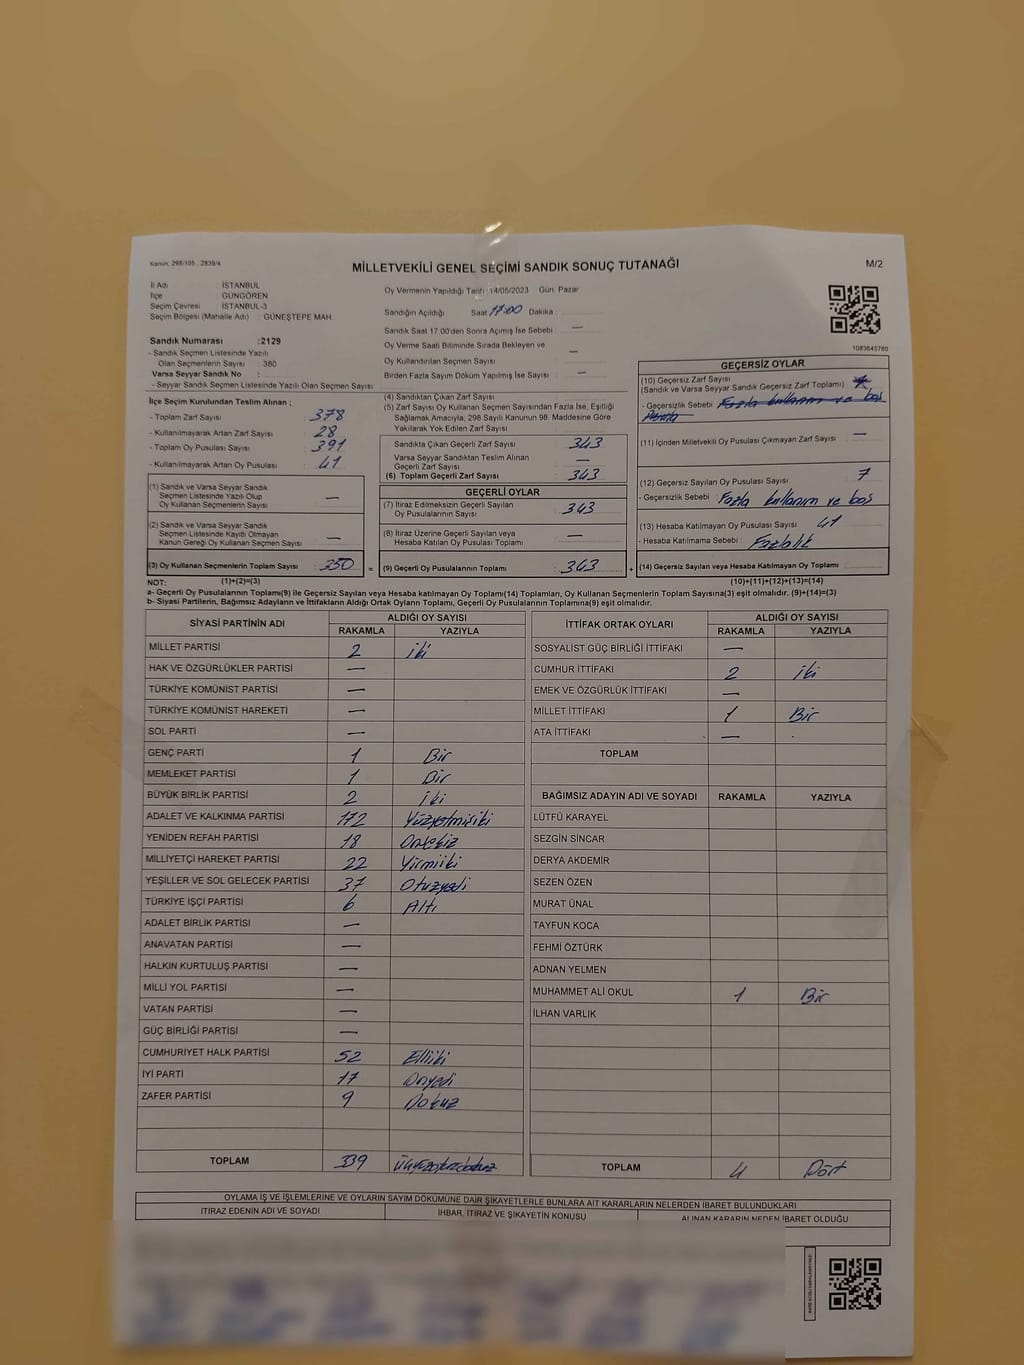 Kanun: 298/105, 2839/4
MİLLETVEKİLİ GENEL SEÇİMİ SANDIK SONUÇ TUTANAĞI
M/2
İl Adı : İSTANBUL
İlçe : GÜNGÖREN
Seçim Çevresi : İSTANBUL-3
Seçim Bölgesi (Mahalle Adı) : GÜNEŞTEPE MAH.
Sandık Numarası :2129
- Sandık Seçmen Listesinde Yazılı
Olan Seçmenlerin Sayısı : 380
Varsa Seyyar Sandık No :
- Seyyar Sandık Seçmen Listesinde Yazılı Olan Seçmen Sayısı
Oy Vermenin Yapıldığı Tarih :14/05/2023 Gün: Pazar
Sandığın Açıldığı Saat 17:00 Dakika :
Sandık Saat 17.00'den Sonra Açılmış İse Sebebi : —
Oy Verme Saati Bitiminde Sırada Bekleyen ve
Oy Kullandırılan Seçmen Sayısı —
Birden Fazla Sayım Döküm Yapılmış İse Sayısı : —
1083645780
İlçe Seçim Kurulundan Teslim Alınan ;
- Toplam Zarf Sayısı 378
- Kullanılmayarak Artan Zarf Sayısı 28
- Toplam Oy Pusulası Sayısı 391
- Kullanılmayarak Artan Oy Pusulası 41
(1) Sandık ve Varsa Seyyar Sandık
Seçmen Listesinde Yazılı Olup
Oy Kullanan Seçmenlerin Sayısı —
(2) Sandık ve Varsa Seyyar Sandık
Seçmen Listesinde Kayıtlı Olmayan
Kanun Gereği Oy Kullanan Seçmen Sayısı —
(3) Oy Kullanan Seçmenlerin Toplam Sayısı : 350 =
(4) Sandıktan Çıkan Zarf Sayısı
(5) Zarf Sayısı Oy Kullanan Seçmen Sayısından Fazla İse, Eşitliği
Sağlamak Amacıyla, 298 Sayılı Kanunun 98. Maddesine Göre
Yakılarak Yok Edilen Zarf Sayısı
Sandıkta Çıkan Geçerli Zarf Sayısı 343
Varsa Seyyar Sandıktan Teslim Alınan
Geçerli Zarf Sayısı —
(6) Toplam Geçerli Zarf Sayısı : 343
GEÇERLİ OYLAR
(7) İtiraz Edilmeksizin Geçerli Sayılan
Oy Pusulalarının Sayısı : 343
(8) İtiraz Üzerine Geçerli Sayılan veya
Hesaba Katılan Oy Pusulası Toplamı : —
(9) Geçerli Oy Pusulalarının Toplamı : 343 +
GEÇERSİZ OYLAR
(10) Geçersiz Zarf Sayısı
(Sandık ve Varsa Seyyar Sandık Geçersiz Zarf Toplamı)
- Geçersizlik Sebebi : Fazla kullanım ve boş
(11) İçinden Milletvekili Oy Pusulası Çıkmayan Zarf Sayısı —
(12) Geçersiz Sayılan Oy Pusulası Sayısı 7
- Geçersizlik Sebebi : Fazla kullanım ve boş
(13) Hesaba Katılmayan Oy Pusulası Sayısı 41
- Hesaba Katılmama Sebebi : Fazlalık
(14) Geçersiz Sayılan veya Hesaba Katılmayan Oy Toplamı
NOT: (1)+(2)=(3) (10)+(11)+(12)+(13)=(14)
a- Geçerli Oy Pusulalarının Toplamı(9) ile Geçersiz Sayılan veya Hesaba Katılmayan Oy Toplamı(14) Toplamları, Oy Kullanan Seçmenlerin Toplam Sayısına(3) eşit olmalıdır. (9)+(14)=(3)
b- Siyasi Partilerin, Bağımsız Adayların ve İttifakların Aldığı Ortak Oyların Toplamı, Geçerli Oy Pusulalarının Toplamına(9) eşit olmalıdır.
SİYASİ PARTİNİN ADI ALDIĞI OY SAYISI
RAKAMLA YAZIYLA
MİLLET PARTİSİ 2 iki
HAK VE ÖZGÜRLÜKLER PARTİSİ —
TÜRKİYE KOMÜNİST PARTİSİ —
TÜRKİYE KOMÜNİST HAREKETİ —
SOL PARTİ —
GENÇ PARTİ 1 Bir
MEMLEKET PARTİSİ 1 Bir
BÜYÜK BİRLİK PARTİSİ 2 iki
ADALET VE KALKINMA PARTİSİ 172 Yüzyetmişiki
YENİDEN REFAH PARTİSİ 18 Onsekiz
MİLLİYETÇİ HAREKET PARTİSİ 22 Yirmiiki
YEŞİLLER VE SOL GELECEK PARTİSİ 37 Otuzyedi
TÜRKİYE İŞÇİ PARTİSİ 6 Altı
ADALET BİRLİK PARTİSİ —
ANAVATAN PARTİSİ —
HALKIN KURTULUŞ PARTİSİ —
MİLLİ YOL PARTİSİ —
VATAN PARTİSİ —
GÜÇ BİRLİĞİ PARTİSİ —
CUMHURİYET HALK PARTİSİ 52 Elliiki
İYİ PARTİ 17 Onyedi
ZAFER PARTİSİ 9 Dokuz
TOPLAM 339
İTTİFAK ORTAK OYLARI ALDIĞI OY SAYISI
RAKAMLA YAZIYLA
SOSYALİST GÜÇ BİRLİĞİ İTTİFAKI —
CUMHUR İTTİFAKI 2 iki
EMEK VE ÖZGÜRLÜK İTTİFAKI —
MİLLET İTTİFAKI 1 Bir
ATA İTTİFAKI —
TOPLAM
BAĞIMSIZ ADAYIN ADI VE SOYADI RAKAMLA YAZIYLA
LÜTFÜ KARAYEL
SEZGİN SİNCAR
DERYA AKDEMİR
SEZEN ÖZEN
MURAT ÜNAL
TAYFUN KOCA
FEHMİ ÖZTÜRK
ADNAN YELMEN
MUHAMMET ALİ OKUL 1 Bir
İLHAN VARLIK
TOPLAM 4 Dört
OYLAMA İŞ VE İŞLEMLERİNE VE OYLARIN SAYIM DÖKÜMÜNE DAİR ŞİKAYETLERLE BUNLARA AİT KARARLARIN NELERDEN İBARET BULUNDUKLARI
İTİRAZ EDENİN ADI VE SOYADI İHBAR, İTİRAZ VE ŞİKAYETİN KONUSU ALINAN KARARIN NEDEN İBARET OLDUĞU